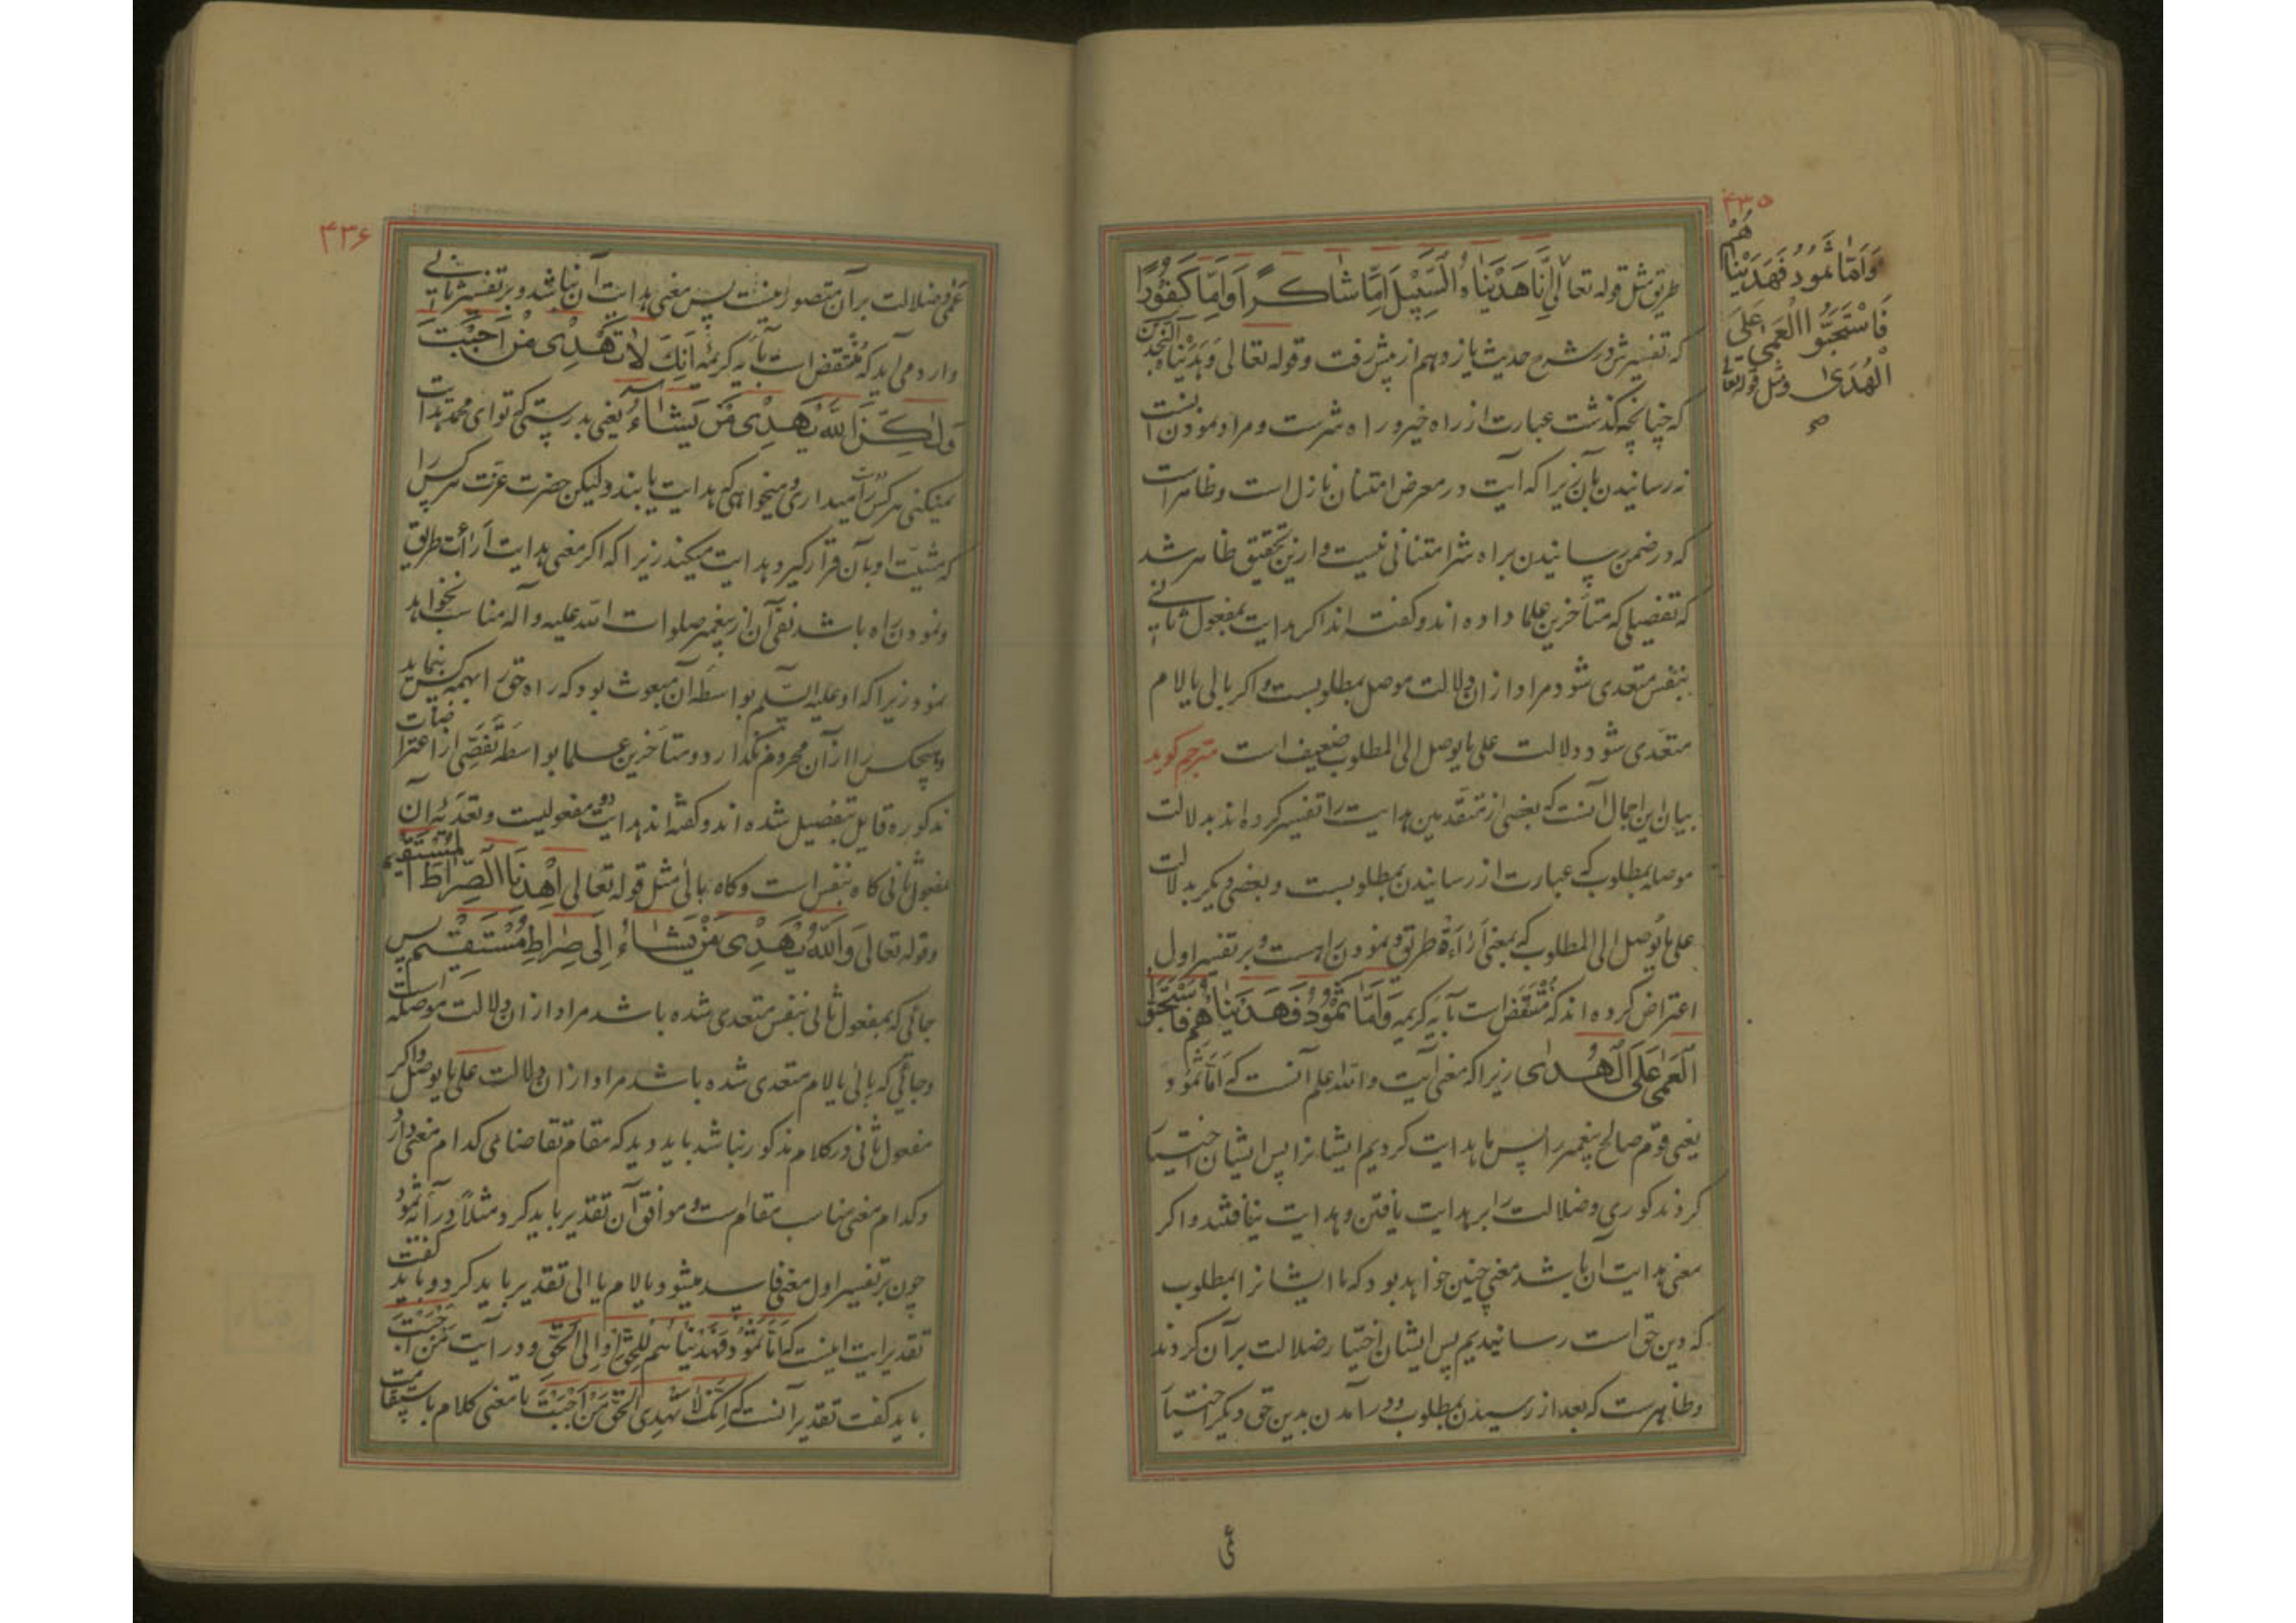 ۴۳۵
وَاَمّا ثَمُودُ فَهَدَیْناهُم
فَاسْتَحَبُّوا الْعَمیٰ عَلَی
الْهُدیٰ ومثل قوله تعالی
صح
طریق مثل قوله تعالی اِنّا هَدَیْناهُ السَّبِیْلَ اِمّا شاکِراً وَاِمّا کَفُوْرًا
که تفسیرش در شرح حدیث یازدهم از پیش رفت و قوله تعالی وَهَدَیْناهُ النَّجْدَیْن
که چنانچه گذشت عبارت از راه خیر و راه شرست و مراد نمودنست
نه رسانیدن بآن زیرا که آیت در معرض امتنان نازل است و ظاهرست
که در ضمن رسانیدن براه شر امتنانی نیست و ازین تحقیق ظاهر شد
که تفصیلی که متأخرین علما داده اند و گفته اند اگر هدایت بمفعول ثانی
بنفس متعدی شود مراد ازان دلالت موصل بمطلوبست و اگر بالی یا لام
متعدی شود دلالت علی ما یوصل الی المطلوب ضعیف است مترجم گوید
بیان این اجمال آنست که بعضی از متقدمین هدایت را تفسیر کرده اند بدلالت
موصله بمطلوب که عبارت از رسانیدن بمطلوبست و بعضی دیگر بدلالت
علی ما یُوصل الی المطلوب که بمعنی اَراءَة طریق و نمودن راهست و بر تفسیر اول
اعتراض کرده اند که مُنْتَقَض است بآیه کریمه وَاَمّا ثَمُوْدُ فَهَدَیْناهُمْ فَاسْتَحَبُّوا
الْعَمیٰ عَلَی الْهُدیٰ زیرا که معنی آیت والله اعلم آنست که اَمّا ثمود
یعنی قوم صالح پیغمبر را پس ما هدایت کردیم ایشانرا پس ایشان اختیار
کردند کوری و ضلالت را بر هدایت یافتن و هدایت نیافتند و اگر
معنی هدایت آن باشد معنی چنین خواهد بود که ما ایشانرا بمطلوب
که دین حق است رسانیدیم پس ایشان اختیار ضلالت بر آن کردند
و ظاهرست که بعد از رسیدن بمطلوب و درآمدن بدین حق دیگر اختیار
۴۳۶
عمی و ضلالت بر آن متصور نیست پس معنی هدایت آن نباشد و بر تفسیر ثانی
وارد می آید که مُنْتَقَض است بآیه کریمه اِنَّکَ لاتَهْدِیْ مَنْ اَحْبَبْتَ
وَلٰکِنَّ اللّهَ یَهْدِیْ مَنْ یَشاءُ یعنی بدرستی که تو ای محمد هدایت
نمیکنی هر کس را دوست میداری و میخواهی که هدایت یابند ولیکن حضرت عزت هر کس را
که مشیّت او بآن قرار گیرد هدایت میکند زیرا که اگر معنی هدایت اَراءت طریق
و نمودن راه باشد نفی آن از پیغمبر صلوات الله علیه وآله مناسب نخواهد
نمود زیرا که او علیه السّلم بواسطه آن مبعوث بود که راه حق را بهمه کس بنماید
و هیچکس را از آن محروم نگذارد و متأخرین علما بواسطه تَفَصّی از اعتراضات
مذکوره قایل بتفصیل شده اند و گفته اند هدایت دو مفعولیت و تعدیه آن
بمفعول ثانی گاه بنفس است و گاه بالی مثل قوله تعالی اِهْدِنَا الصِّراطَ المُسْتَقیم
وقوله تعالی وَاللّهُ یَهْدِیْ مَنْ یَشاءُ اِلی صِراطٍ مُسْتَقِیْمٍ پس
جائی که بمفعول ثانی بنفس متعدی شده باشد مراد ازان دلالت موصله است
و جائی که بالی یا لام متعدی شده باشد مراد ازان دلالت علی ما یوصل و اگر
مفعول ثانی در کلام مذکور نباشد باید دید که مقام تقاضای کدام معنی دارد
و کدام معنی مناسب مقامست و موافق آن تقدیر باید کرد مثلاً در آیه ثمود
چون بر تفسیر اول معنی فاسد میشود با لام یا الی تقدیر باید کرد و باید گفت
تقدیر آیت اینست که اَمّا ثَمُوْدُ فَهَدَیْناهُمْ لِلْحَقِّ اَوْ اِلی الْحَقِّ و در آیت مَن اَحْبَبْتَ
باید گفت تقدیر آنست که اِنَّکَ لا تَهْدِی الْحَقَّ مَنْ اَحْبَبْتَ تا معنی کلام
ئی